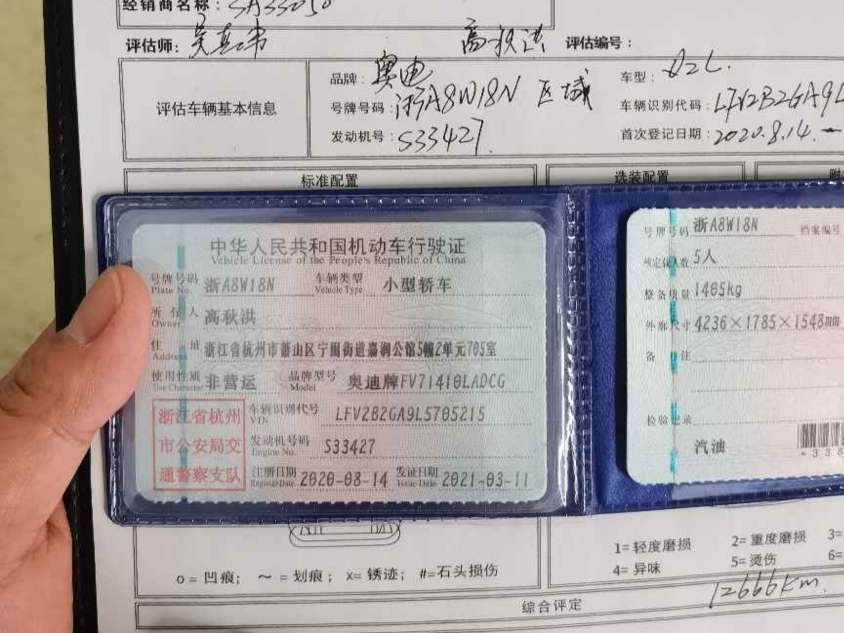 经销商名称：SA33050
评估师： 高秋洪 评估编号：
评估车辆基本信息
品牌：奥迪 车型：Q2L.
号牌号码：浙A8W18N 区域 车辆识别代码：LFV2B2GA9L
发动机号：S33427. 首次登记日期：2020.8.14.
标准配置 选装配置 附
中华人民共和国机动车行驶证
Vehicle License of the People's Republic of China
号牌号码 浙A8W18N 车辆类型 小型轿车
Plate No. Vehicle Type
所有人 高秋洪
Owner
住址 浙江省杭州市萧山区宁围街道嘉润公馆5幢2单元705室
Address
使用性质 非营运 品牌型号 奥迪牌FV71410LADCG
Use Character Model
浙江省杭州
市公安局交
通警察支队
车辆识别代号 LFV2B2GA9L5705215
VIN
发动机号码 S33427
Engine No.
注册日期 2020-08-14 发证日期 2021-03-11
Register Date Issue Date
号牌号码 浙A8W18N 档案编号
核定载人数 5人
整备质量 1405kg
外廓尺寸 4236×1785×1548
备注
检验记录
汽油
*338
o=凹痕； ～=划痕； x=锈迹； #=石头损伤
1=轻度磨损 2=重度磨损 3=
4=异味 5=烫伤 6=
综合评定 12666km.